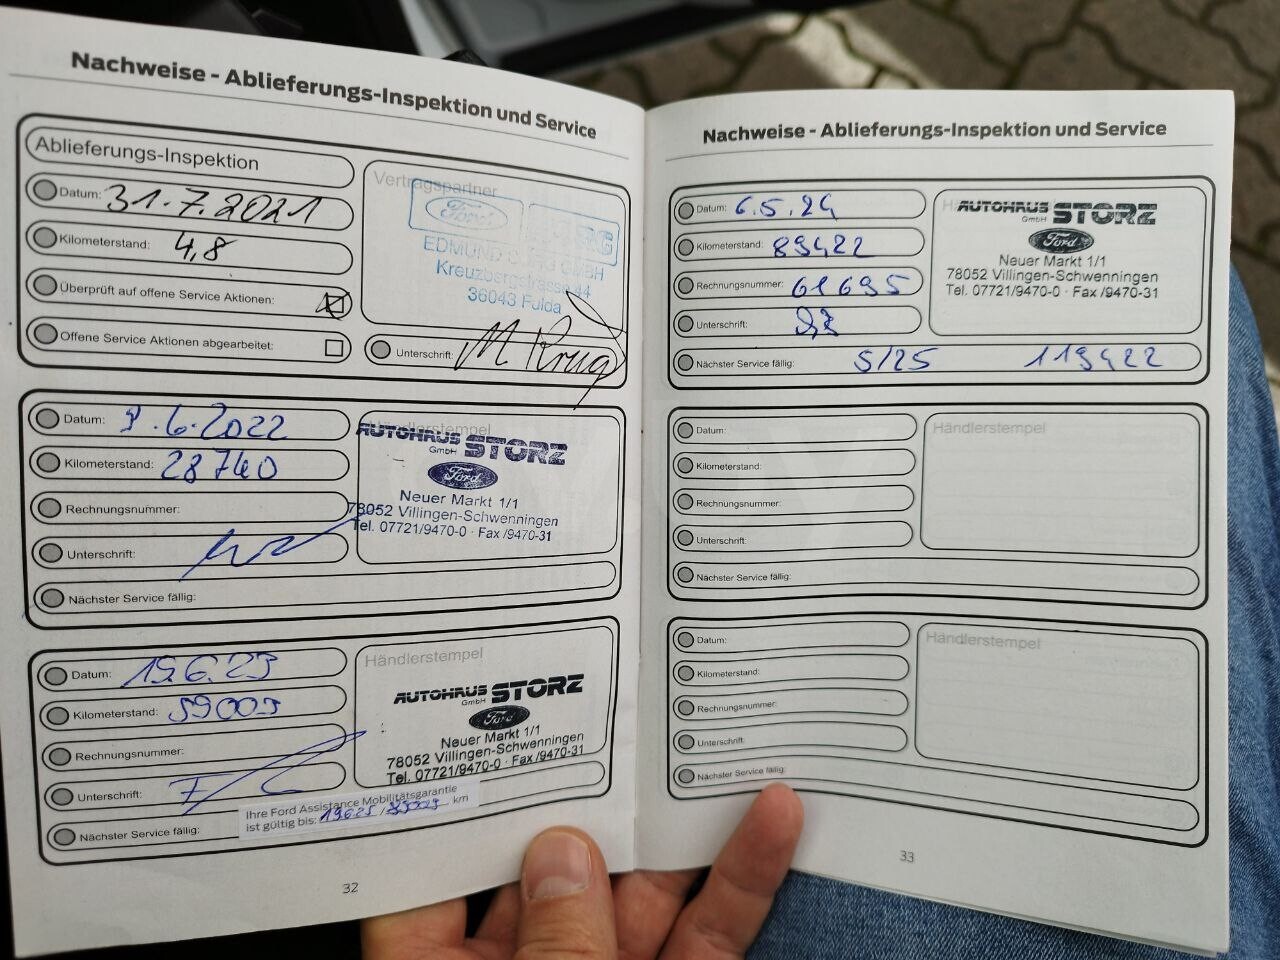 Nachweise - Ablieferungs-Inspektion und Service
Ablieferungs-Inspektion
Datum: 31.7.2021
Kilometerstand: 4,8
Überprüft auf offene Service Aktionen:
Offene Service Aktionen abgearbeitet:
Vertragspartner
Ford
EDMUND GMBH
Kreuzbergstrasse 44
36043 Fulda
Unterschrift: M Krug
Datum: .6.2022
Kilometerstand: 28740
Rechnungsnummer:
Unterschrift:
Nächster Service fällig:
Händlerstempel
AUTOHAUS STORZ
Ford
Neuer Markt 1/1
78052 Villingen-Schwenningen
Tel. 07721/9470-0 · Fax /9470-31
Datum: 19.6.23
Kilometerstand: 59009
Rechnungsnummer:
Unterschrift:
Nächster Service fällig:
Händlerstempel
AUTOHAUS STORZ
GmbH
Ford
Neuer Markt 1/1
78052 Villingen-Schwenningen
Tel. 07721/9470-0 · Fax /9470-31
Ihre Ford Assistance Mobilitätsgarantie
ist gültig bis: 19.6.25 / km
32
Nachweise - Ablieferungs-Inspektion und Service
Datum: 6.5.24
Kilometerstand: 89422
Rechnungsnummer: 61695
Unterschrift:
Nächster Service fällig: 5/25 119422
AUTOHAUS STORZ
GmbH
Ford
Neuer Markt 1/1
78052 Villingen-Schwenningen
Tel. 07721/9470-0 · Fax /9470-31
Datum:
Kilometerstand:
Rechnungsnummer:
Unterschrift:
Nächster Service fällig:
Händlerstempel
Datum:
Kilometerstand:
Rechnungsnummer:
Unterschrift:
Nächster Service fällig:
Händlerstempel
33